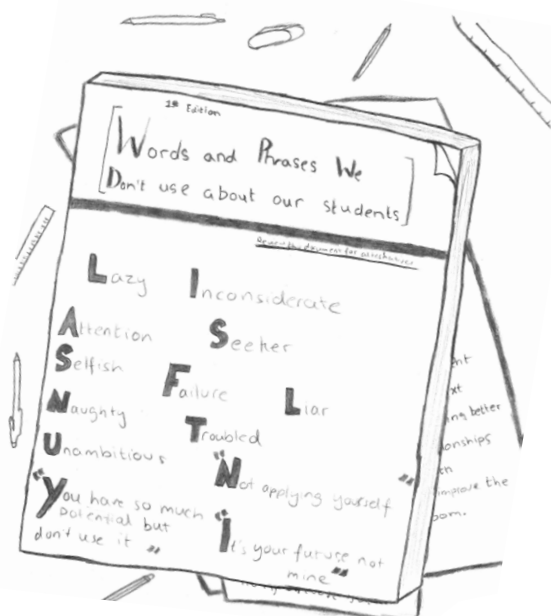 1st Edition
Words and Phrases We
Don't use about our students
Lazy Inconsiderate
Attention Seeker
Selfish
Failure Liar
Naughty
Troubled
Unambitious
"Not applying yourself"
"You have so much
potential but
don't use it"
"It's your future not
mine"
xt
ing better
onships
improve the